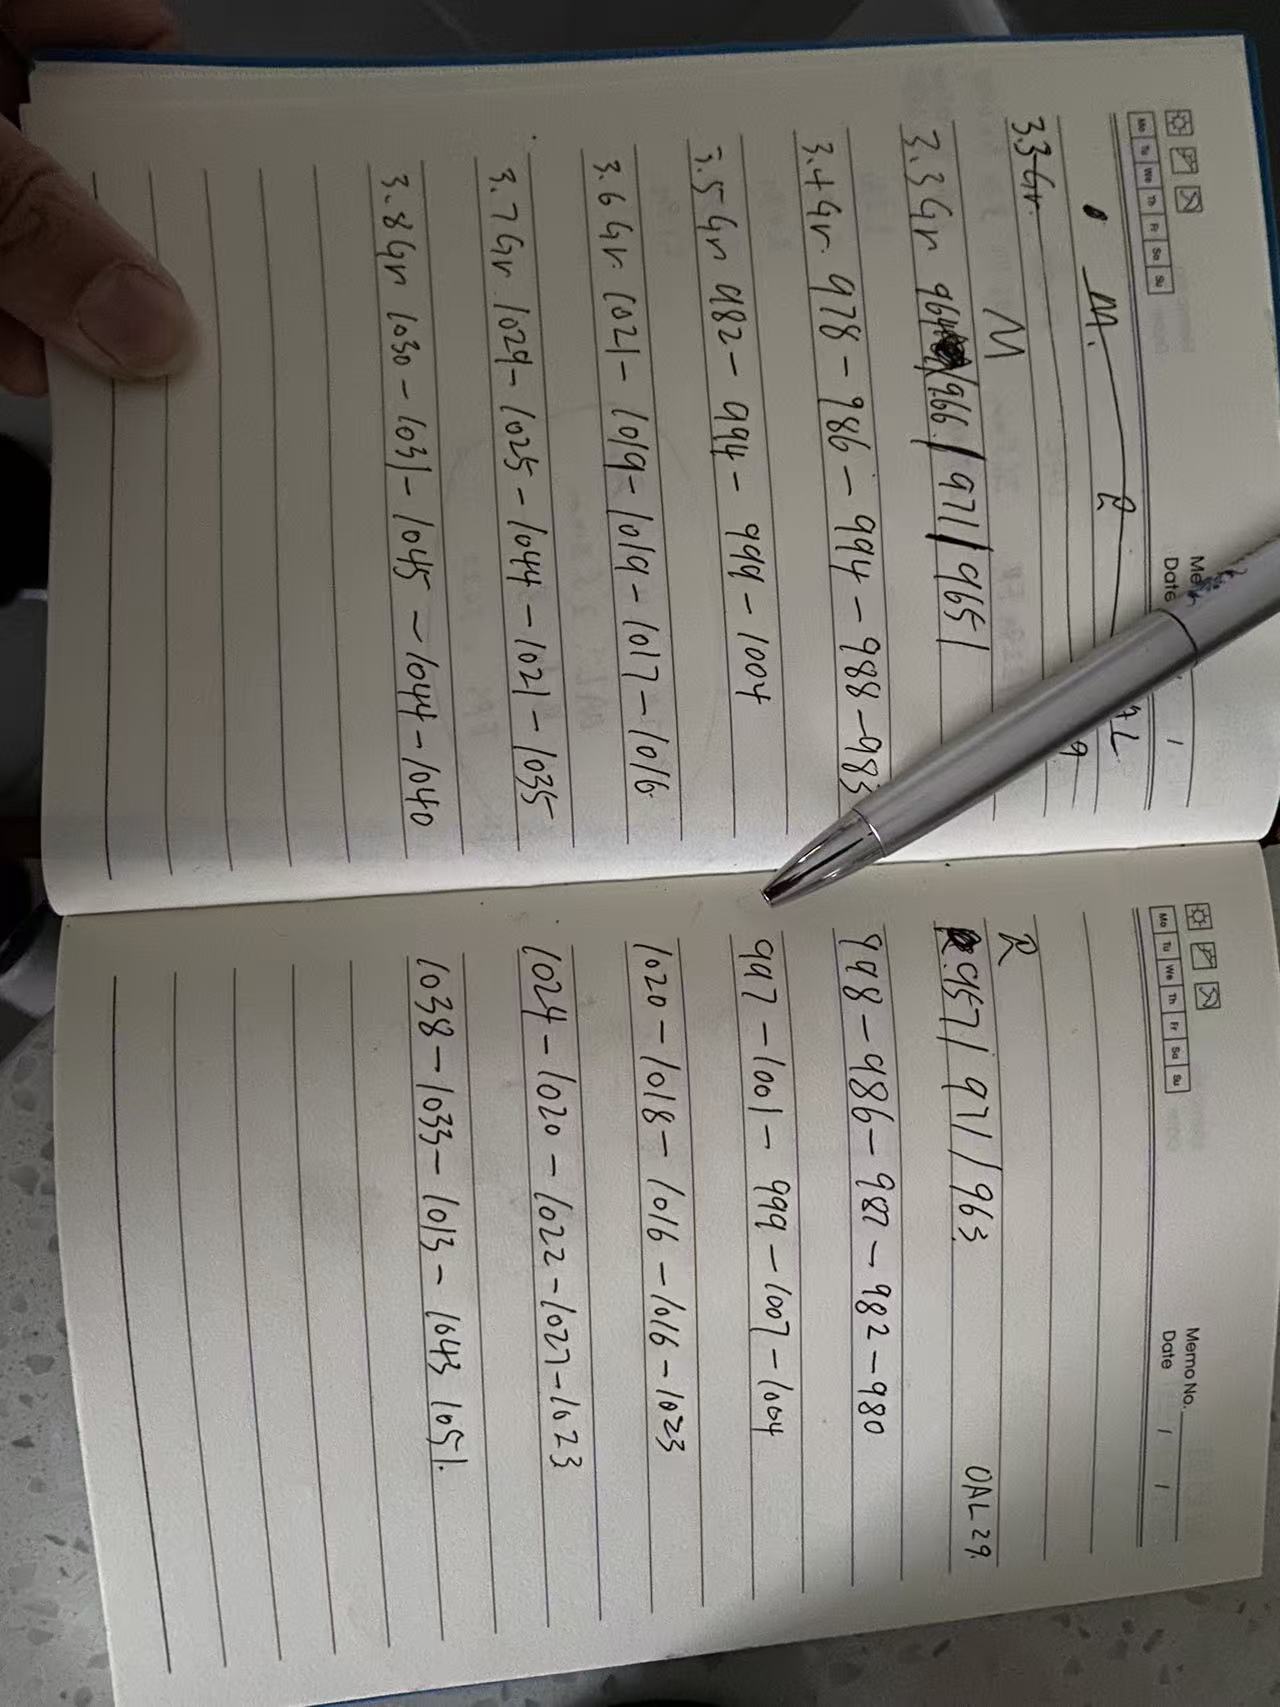 Mo Tu We Th Fr Sa Su
Date /
M. R
3.3 Gr.
M
3.3 Gr 964 / 966 / 971 / 965 /
3.4 Gr. 978 - 986 - 994 - 988 - 983
3.5 Gr 982 - 994 - 999 - 1004
3.6 Gr. 1021 - 1019 - 1019 - 1017 - 1016.
3.7 Gr. 1029 - 1025 - 1044 - 1021 - 1035
3.8 Gr 1030 - 1031 - 1045 - 1044 - 1040
Mo Tu We Th Fr Sa Su
Memo No.
Date / /
R
957 / 971 / 963 OAL 29.
998 - 986 - 987 - 982 - 980
997 - 1001 - 999 - 1007 - 1004
1020 - 1018 - 1016 - 1016 - 1023
1024 - 1020 - 1022 - 1027 - 1023
1038 - 1033 - 1013 - 1043 1051.